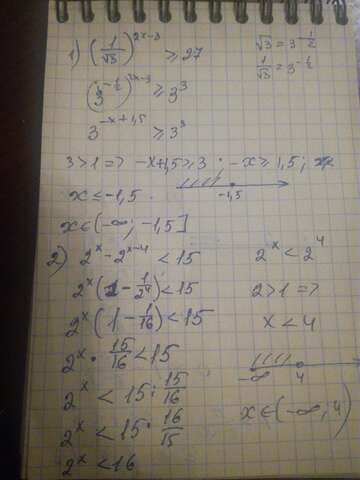 1) (1/√3)^(2x-3) ≥ 27
√3 = 3^(1/2)
1/√3 = 3^(-1/2)
(3^(-1/2))^(2x-3) ≥ 3^3
3^(-x+1,5) ≥ 3^3
3>1 => -x+1,5 ≥ 3; -x ≥ 1,5;
-1,5
x ≤ -1,5.
x∈(-∞; -1,5]
2) 2^x - 2^(x-4) < 15
2^x (1 - 1/2^4) < 15
2^x (1 - 1/16) < 15
2^x · 15/16 < 15
2^x < 15 : 15/16
2^x < 15 · 16/15
2^x < 16
2^x < 2^4
2>1 =>
x < 4
-∞ 4
x∈(-∞; 4)